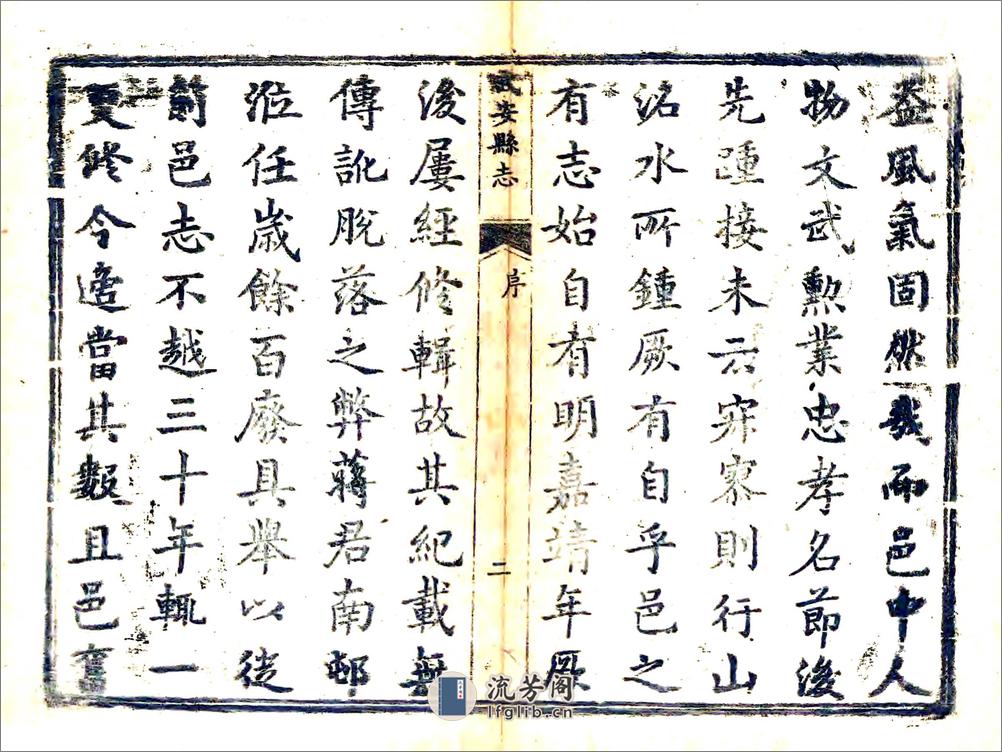 益風氣固然哉而邑中人
物文武勲業忠孝名節後
先踵接未云寂寥則行山
洺水所鍾厥有自乎邑之
有志始自有明嘉靖年厥
武安縣志
序
二
後屢經修輯故其紀載無
傳訛脫落之弊蔣君南邨
涖任歲餘百廢具舉以從
前邑志不越三十年輒一
更修今適當其數且邑舊
流芳阁
lfglib.cn